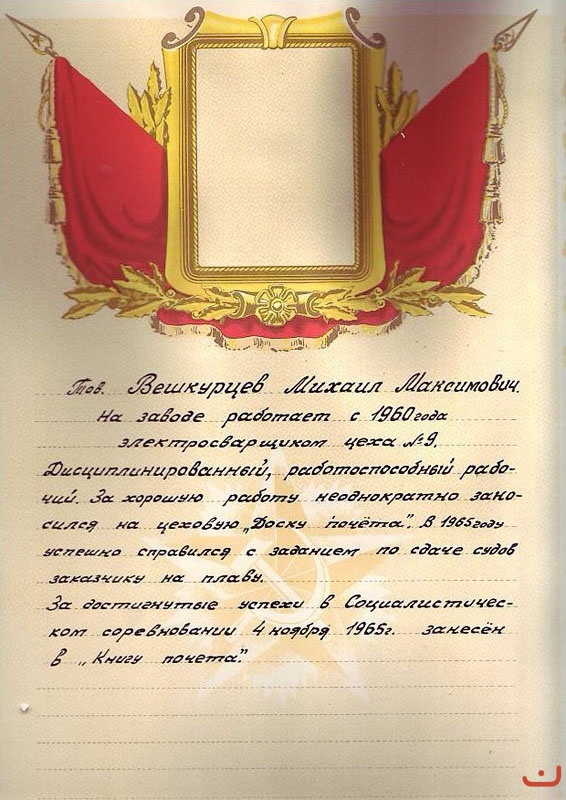 Тов. Вешкурцев Михаил Максимович.
На заводе работает с 1960 года
электросварщиком цеха №9.
Дисциплинированный, работоспособный рабо-
чий. За хорошую работу неоднократно зано-
сился на цеховую „Доску почёта". В 1965 году
успешно справился с заданием по сдаче судов
заказчику на плаву.
За достигнутые успехи в Социалистичес-
ком соревновании 4 ноября 1965г. занесён
в „Книгу почета".